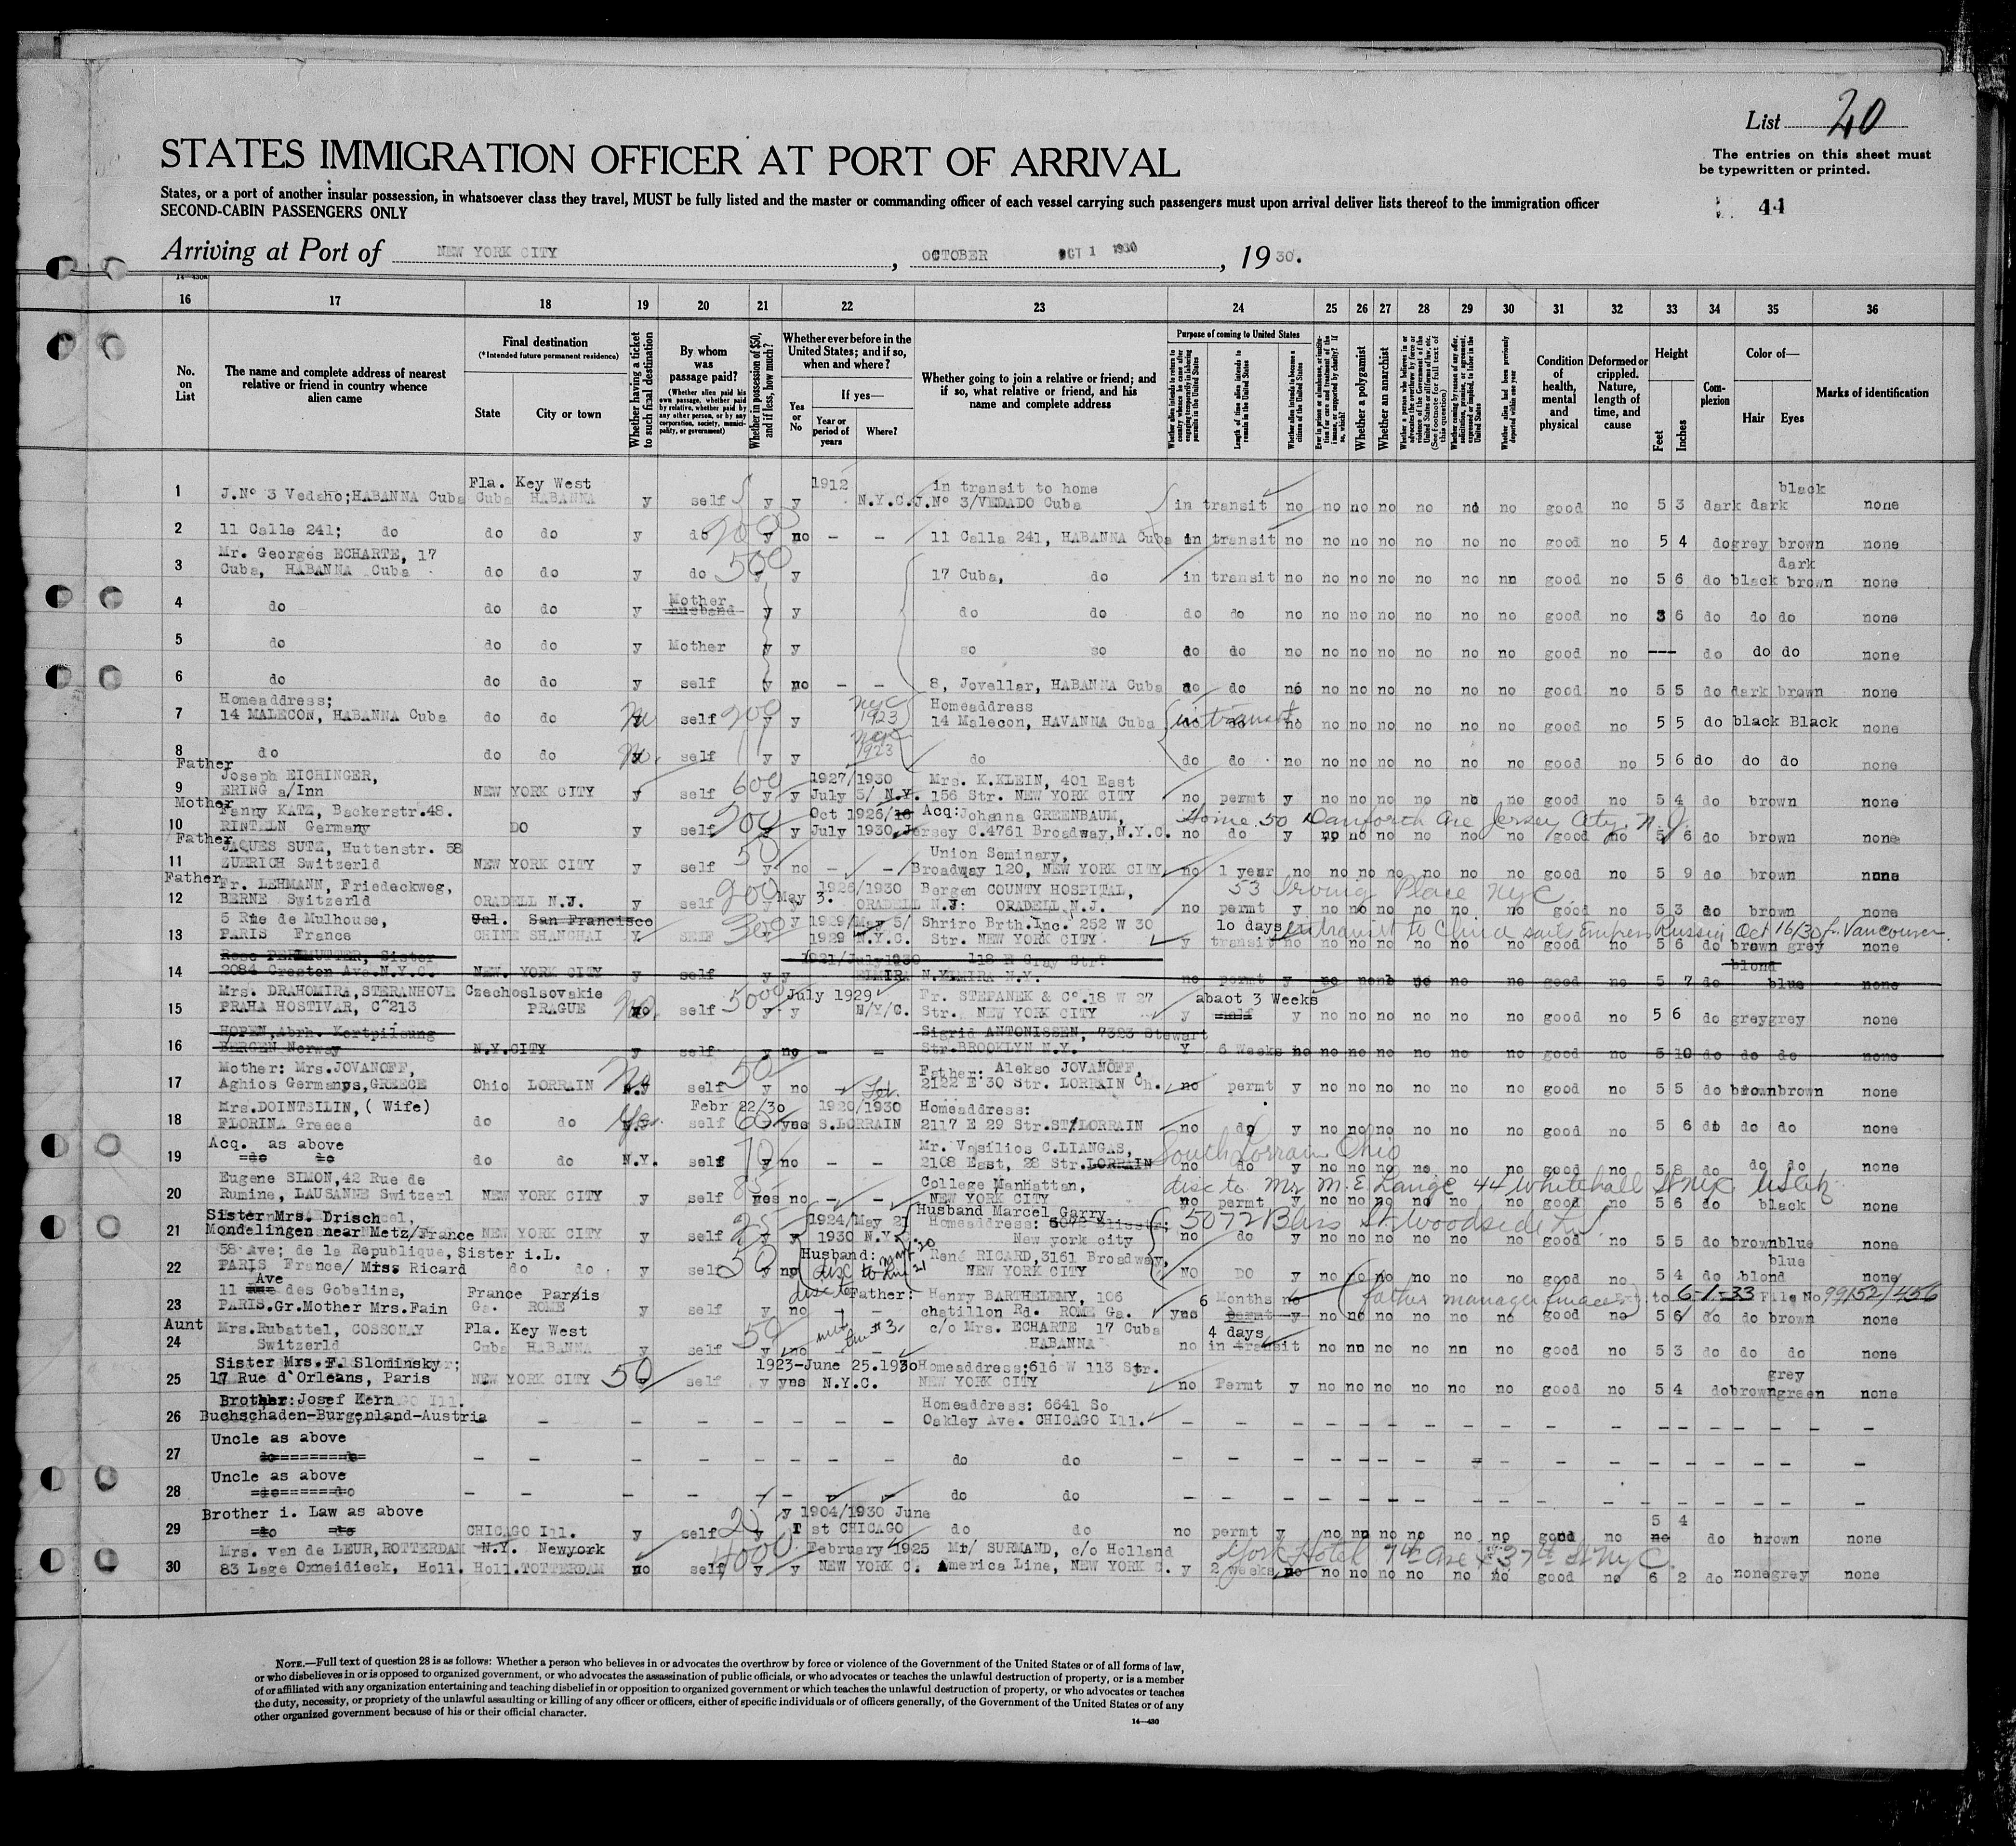 List 20
The entries on this sheet must
be typewritten or printed.
STATES IMMIGRATION OFFICER AT PORT OF ARRIVAL
States, or a port of another insular possession, in whatsoever class they travel, MUST be fully listed and the master or commanding officer of each vessel carrying such passengers must upon arrival deliver lists thereof to the immigration officer
SECOND-CABIN PASSENGERS ONLY
44
Arriving at Port of NEW YORK CITY , OCTOBER OCT 1 1930 , 19 30.
14—430A
16 17 18 19 20 21 22 23 24 25 26 27 28 29 30 31 32 33 34 35 36
No. on List
The name and complete address of nearest relative or friend in country whence alien came
Final destination
(*Intended future permanent residence)
State
City or town
Whether having a ticket to such final destination
By whom was passage paid?
(Whether alien paid his own passage, whether paid by relative, whether paid by any other person, or by any corporation, society, municipality, or government)
Whether in possession of $50, and if less, how much?
Whether ever before in the United States; and if so, when and where?
Yes or No
If yes—
Year or period of years
Where?
Whether going to join a relative or friend; and if so, what relative or friend, and his name and complete address
Purpose of coming to United States
Whether alien intends to return to country whence he came after engaging temporarily in laboring pursuits in the United States
Length of time alien intends to remain in the United States
Whether alien intends to become a citizen of the United States
Whether a polygamist
Whether an anarchist
(See footnote for full text of this question)
Condition of health, mental and physical
Deformed or crippled. Nature, length of time, and cause
Height
Feet
Inches
Com-plexion
Color of—
Hair
Eyes
Marks of identification
1 J.No 3 Vedaho;HABANNA Cuba Fla. Key West Cuba HABANNA y self y y 1912 N.Y.C. in transit to home J.No 3/VEDADO Cuba in transit no no no no no no no good no 5 3 dark dark black none
2 11 Calle 241; do do do y do 200 y no — — 11 Calla 241, HABANNA Cuba in transit no no no no no no no good no 5 4 do grey brown none
3 Mr. Georges ECHARTE, 17 Cuba, HABANNA Cuba do do y do 500 y y 17 Cuba, do in transit no no no no no no nn good no 5 6 do black dark brown none
4 do do do y Mother husband y y do do do do no no no no no no no good no 3 6 do do do none
5 do do do y Mother y y so so do do no no no no no no no good no --- do do do none
6 do do do y self y no — — 8, Jovellar, HABANNA Cuba do do no no no no no no no good no 5 5 do dark brown none
7 Homeaddress; 14 MALECON, HABANNA Cuba do do self 200 y y NYC 1923 Homeaddress 14 Malecon, HAVANNA Cuba in transit no no no no no no no good no 5 5 do black Black none
8 do do do self y y 1923 do do do no no no no no no no good no 5 6 do do do none
9 Father Joseph EICHINGER, ERING a/Inn NEW YORK CITY y self 600 y y 1927/1930 July 3/ N.Y. Mrs. K.KLEIN, 401 East 156 Str. NEW YORK CITY no permt y no no no no no no good no 5 4 do brown none
10 Mother Fanny KATZ, Backerstr.48. RINTELN Germany DO y self 200 y y Oct 1926/ July 1930, Jersey C. Acq: Johanna GREENBAUM, 4761 Broadway,N.Y.C. Home 50 Danforth Ave Jersey City, N.J. no do y no no no no no no good no 5 6 do brown none
11 Father JAQUES SUTZ, Huttenstr. 58 ZUERICH Switzerld NEW YORK CITY y self 50 y no — — Union Seminary, Broadway 120, NEW YORK CITY no 1 year no no no no no no no good no 5 9 do brown none
12 Father Fr. LEHMANN, Friedeckweg, BERNE Switzerld ORADELL N.J. y self 200 May 3. 1926/1930 ORADELL N.J: Bergen COUNTY HOSPITAL, ORADELL N.J. 53 Irving Place NYC no permt y no no no no no no good no 5 3 do brown none
13 5 Rue de Mulhouse, PARIS France Cal. San Francisco CHINE SHANGHAI y SELF 300 y 1929/May 5/ 1929 N.Y.C. Shriro Brth.Inc. 252 W 30 Str. NEW YORK CITY y 10 days transit in transit to China sails Empress Russia Oct 16/30 fr. Vancouver no no no no no no no good no 5 6 do brown grey none
14 Rose PERLMUTTER, Sister 2084 Creston Ave.N.Y.C. NEW YORK CITY y self y y 1921/July1930 ELMIRA 118 E Gray Str? N.YLMIRA N.Y. no permt y no no no no no no good no 5 7 do blond blue none
15 Mrs. DRAHOMIRA,STERANHOVE PRAHA HOSTIVAR, C~213 Czechoslsovakie PRAGUE no self 5000 y y July 1929 N/Y/C. Fr. STEPANEK & Co.18 W 27 Str. NEW YORK CITY y abaot 3 Weeks y no no no no no no good no 5 6 do grey grey none
16 HOPEN,Abrh. Kortpilsung BERGEN Norway N.Y.CITY y self y no — — Sigrid ANTONISSEN, 7323 Stewart Str.BROOKLYN N.Y. Y 6 Weeks no no no no no no no good no 5 10 do do do none
17 Mother: Mrs.JOVANOFF, Aghios Germanps,GREECE Ohio LORRAIN self 50 y no Father: Alekso JOVANOFF, 2122 E 30 Str. LORRAIN Oh. no permt y no no no no no no good no 5 5 do brown brown none
18 Mrs.DOINTSILIN,( Wife) FLORINA Greece do do self 60 Febr 22/30 yes 1920/1930 S.LORRAIN Homeaddress: 2117 E 29 Str.ST/LORRAIN no do y no no no no no no good no 5 6 do do do none
19 Acq. as above do do do do N.Y. self 70 y no — — Mr. Vasilios C.LIANGAS, 2108 East, 28 Str.LORRAIN South Lorrain Ohio no do y no no no no no no good no 5 8 do do do none
20 Eugene SIMON,42 Rue de Rumine, LAUSANNE Switzerl NEW YORK CITY y self yes no — — College Manhattan, NEW YORK CITY disc to Mr M.E. Lange 44 Whitehall St NYC no permt y no no no no no no good no 5 6 do black none
21 Sister Mrs. Drisch Mondelingen near Metz/France NEW YORK CITY y self 25 y y 1924/May 21 1930 N.Y. Husband Marcel Garry Homeaddress: New york city 5072 Bliss St Woodside L.I. no do y no no no no no no good no 5 5 do brown blue none
22 58 Ave; de la Republique,Sister i.L. PARIS France/ Miss Ricard do do y self 50 y no Husband: disc to René RICARD,3161 Broadway, NEW YORK CITY NO DO y no no no no no no good no 5 4 do blond blue none
23 11 Ave des Gobelins, PARIS.Gr.Mother Mrs.Fain France Parsis Ga. ROME y self y no — — disc to Father: Henry BARTHELEMY, 106 chatillon Rd. ROME Ga. yes 6 Months no permt y (father manager Ext. to 6-1-33 File No 99152/456 no no no no no no good no 5 6 do do brown none
24 Aunt Mrs.Rubattel, COSSONAY Switzerld Fla. Key West Cuba HABANNA y self 50 y no — — c/o Mrs. ECHARTE 17 Cuba HABANNA no 4 days in transit no nn no no nn no good no 5 3 do do do none
25 Sister Mrs. F. Slominsky; 17 Rue d'Orleans, Paris NEW YORK CITY 50 self y yes 1923-June 25.1930 N.Y.C. Homeaddress;616 W 113 Str. NEW YORK CITY no Permt y no no no no no no good no 5 4 do brown grey green none
26 Brother: Josef Kern Buchschaden-Burgenland-Austria — — — — — — — — Homeaddress: 6641 So Oakley Ave. CHICAGO Ill. — — — — — — — — — — — — — — — —
27 Uncle as above — — — — — — — — do do — — — — — — — — — — — — — — — —
28 Uncle as above — — — — — — — — do do — — — — — — — — — — — — — — — —
29 Brother i. Law as above do do CHICAGO Ill. y self 25 y y 1904/1930 June 1 st CHICAGO do do no permt y no nn no no no no good no 5 4 do brown none
30 Mrs. van de LEUR,ROTTERDAM 83 Lage Oxmeidieck, Holl. N.Y. Newyork Holl.TOTTERDAM no self 4000 y y February 1925 NEW YORK C. Mr/ SURMAND, c/o Holland America Line, NEW YORK C. York Hotel 7th Ave & 37th St NYC. y 2 weeks no no no no no no no good no 6 2 do none grey none
NOTE.—Full text of question 28 is as follows: Whether a person who believes in or advocates the overthrow by force or violence of the Government of the United States or of all forms of law,
or who disbelieves in or is opposed to organized government, or who advocates the assassination of public officials, or who advocates or teaches the unlawful destruction of property, or is a member
of or affiliated with any organization entertaining and teaching disbelief in or opposition to organized government or which teaches the unlawful destruction of property, or who advocates or teaches
the duty, necessity, or propriety of the unlawful assaulting or killing of any officer or officers, either of specific individuals or of officers generally, of the Government of the United States or of any
other organized government because of his or their official character.
14—430